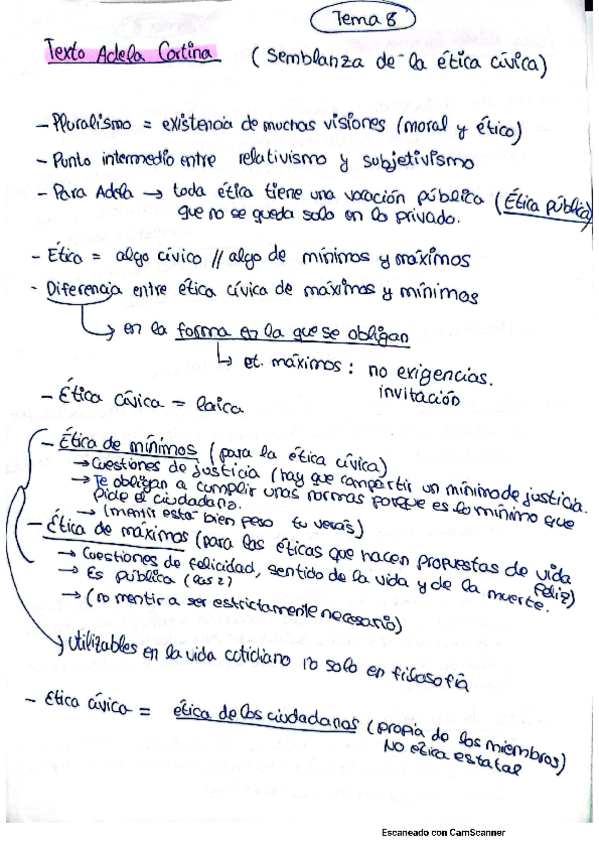 Tema 8
Texto Adela Cortina (Semblanza de la ética cívica)
- Pluralismo = existencia de muchas visiones (moral y ético)
- Punto intermedio entre relativismo y subjetivismo
- Para Adela → toda ética tiene una vocación pública (Ética pública)
que no se queda solo en lo privado.
- Ética = algo cívico // algo de mínimos y máximos
- Diferencia entre ética cívica de máximos y mínimos
↳ en la forma en la que se obligan
↳ et. máximos: no exigencias.
invitación
- Ética cívica = laica
- Ética de mínimos (para la ética cívica)
→ Cuestiones de justicia (hay que compartir un mínimo de justicia.
→ Te obligan a cumplir unas normas porque es lo mínimo que
pide el ciudadano.
→ (mentir está bien peso tu verás)
- Ética de máximos (para las éticas que hacen propuestas de vida
feliz)
→ Cuestiones de felicidad, sentido de la vida y de la muerte.
→ Es pública (las 2)
→ (no mentir a ser estrictamente necesario)
→ Utilizables en la vida cotidiano no solo en filosofía
- Etica cívica = ética de los ciudadanos (propia de los miembros)
No etica estatal
Escaneado con CamScanner